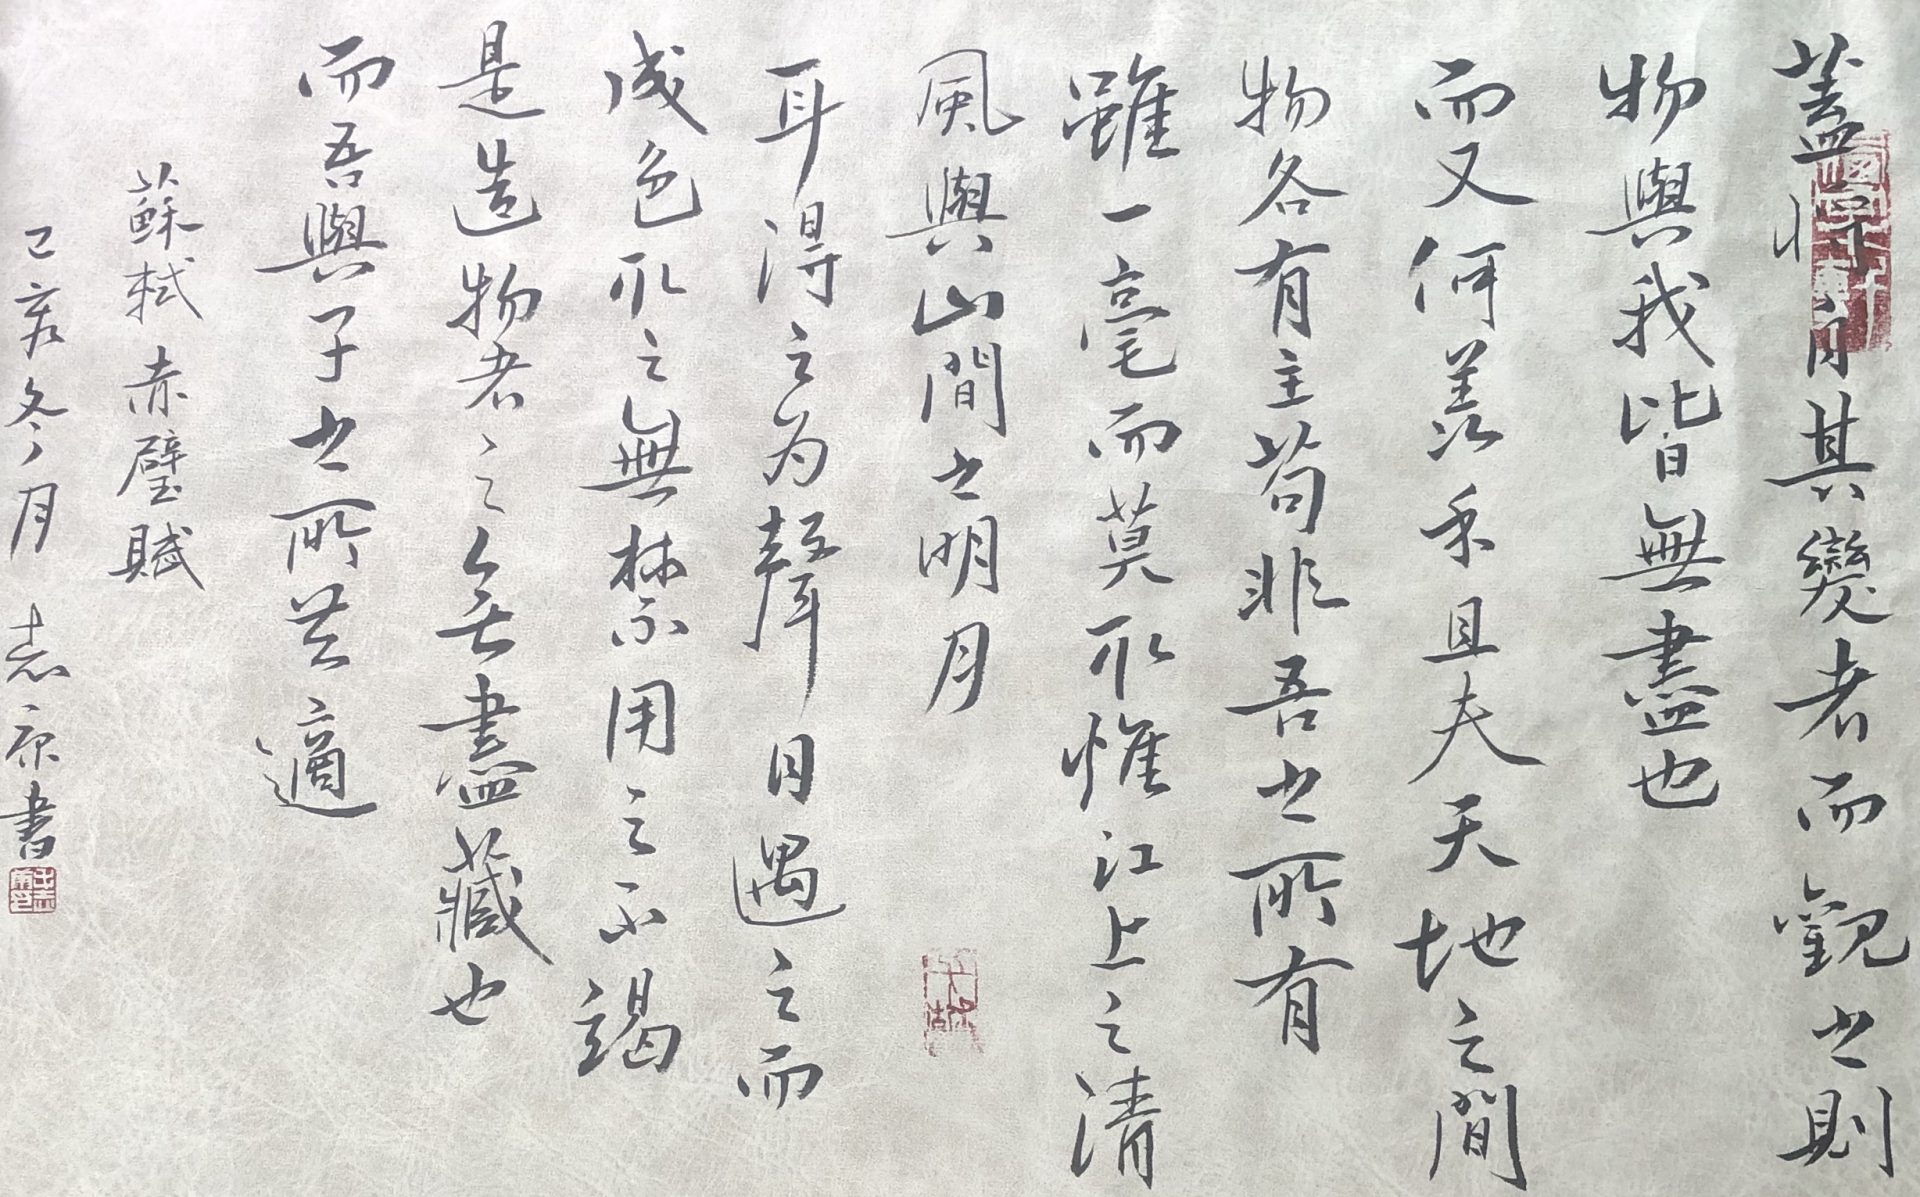 蓋將自其變者而觀之則
物與我皆無盡也
而又何羨乎且夫天地之間
物各有主苟非吾之所有
雖一毫而莫取惟江上之清
風與山間之明月
耳得之为聲目遇之而
成色取之無禁用之不竭
是造物者之无盡藏也
而吾與子之所共適
蘇軾赤璧賦
己亥冬月 志書